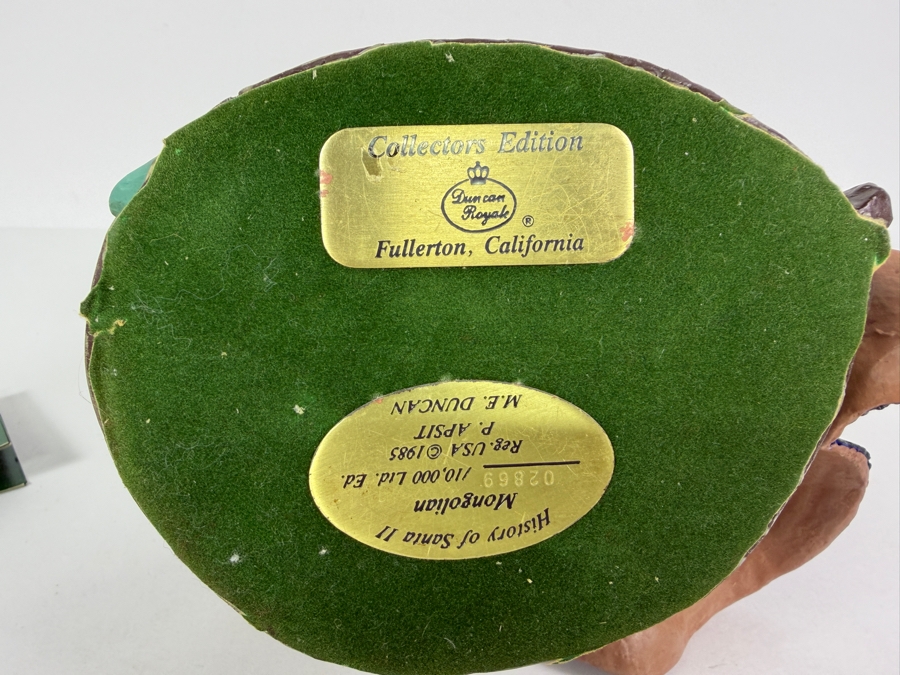 Collectors Edition
Duncan
Royale ®
Fullerton, California
History of Santa II
Mongolian
02869 /10,000 Ltd. Ed.
Reg. USA © 1985
P. APSIT
M.E. DUNCAN